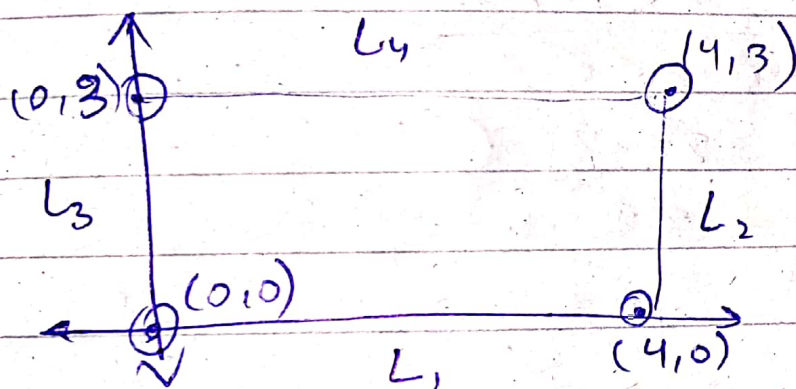 L₄
(4,3)
(0,3)
L₃
L₂
(0,0)
(4,0)
L₁